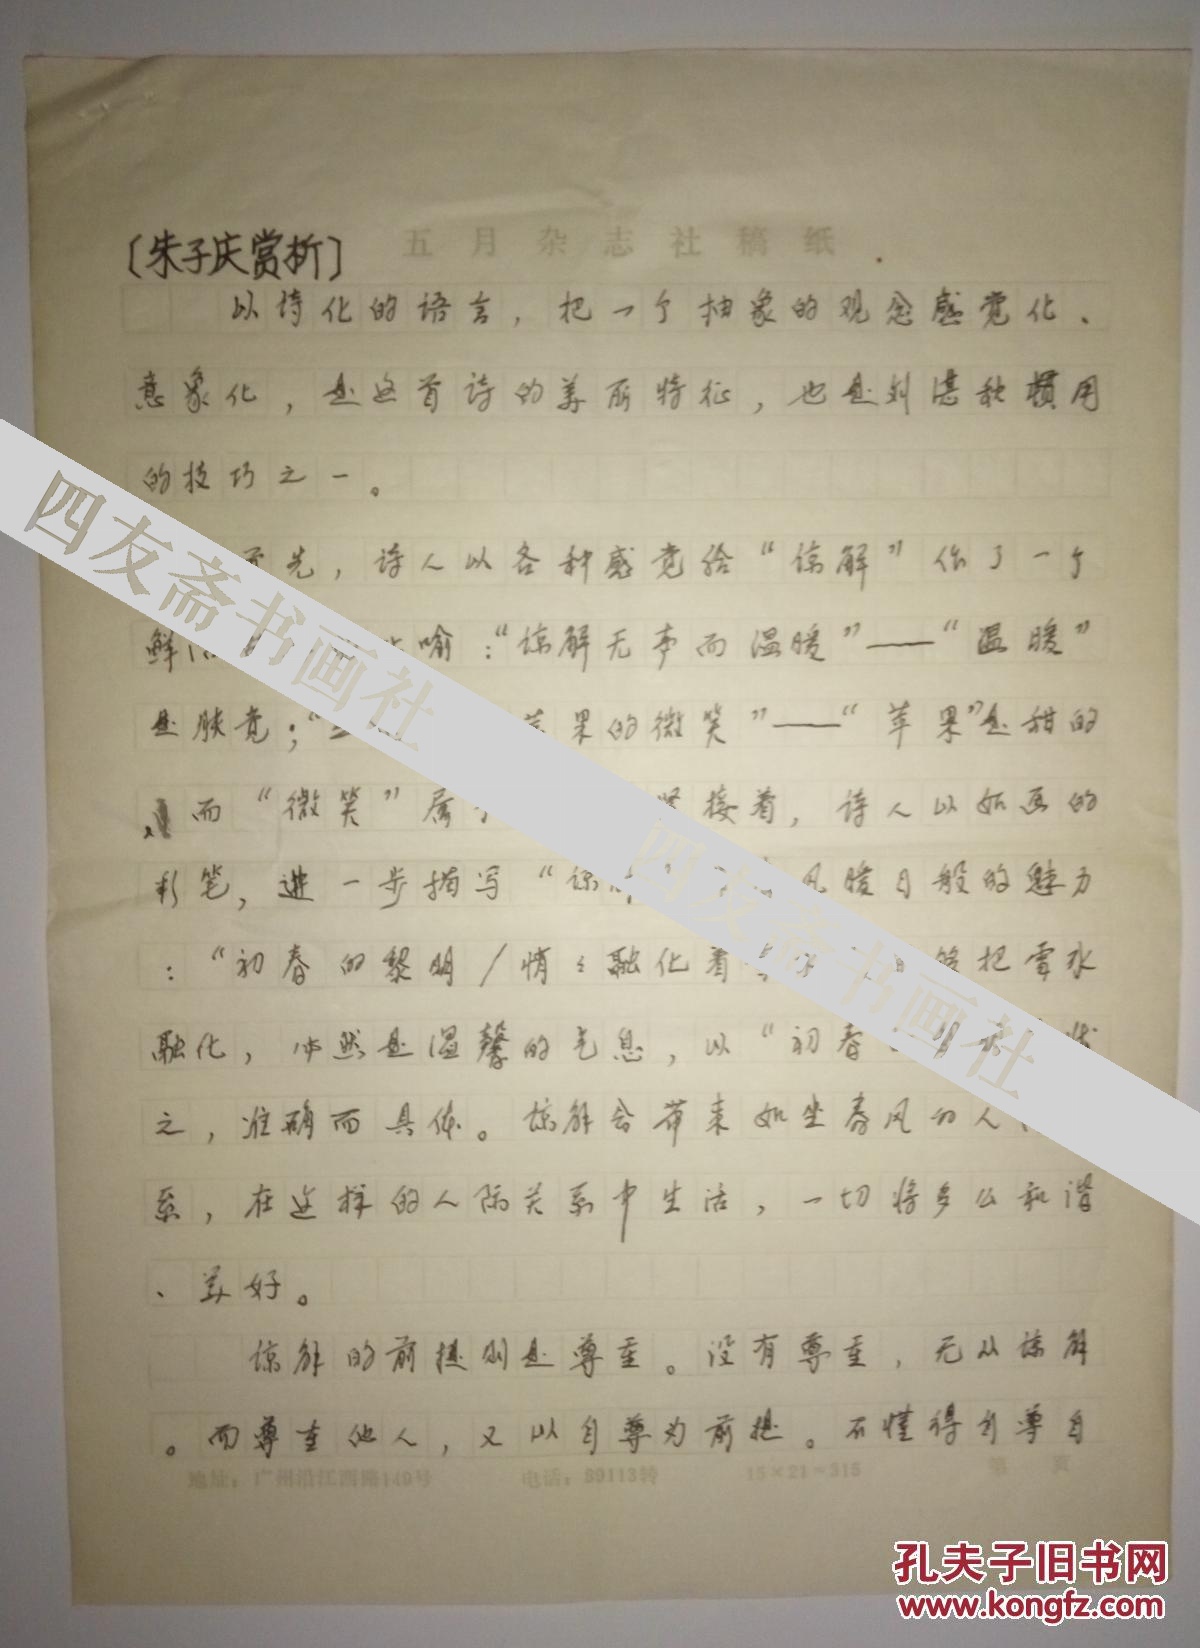 五月杂志社稿纸
〔朱子庆赏析〕
以诗化的语言，把一个抽象的观念感觉化、
意象化，是这首诗的美丽特征，也是刘湛秋惯用
的技巧之一。
先，诗人以各种感觉给“谅解”作了一个
鲜 喻：“谅解无声而温暖”——“温暖”
是肤觉；“ 苹果的微笑”——“苹果”是甜的
，而“微笑”属 紧接着，诗人以如画的
彩笔，进一步描写“谅 风暖日般的魅力
：“初春的黎明/悄々融化着 够把雪水
融化，必然是温馨的气息，以“初春
之，准确而具体。谅解会带来如坐春风的人
系，在这样的人际关系中生活，一切将多么和谐
、美好。
谅解的前提则是尊重。没有尊重，无从谅解
。而尊重他人，又以自尊为前提。不懂得自尊自
地址：广州沿江西路149号 电话：89113转 15×21=315 第 页
四友斋书画社
四友斋书画社
孔夫子旧书网
www.kongfz.com